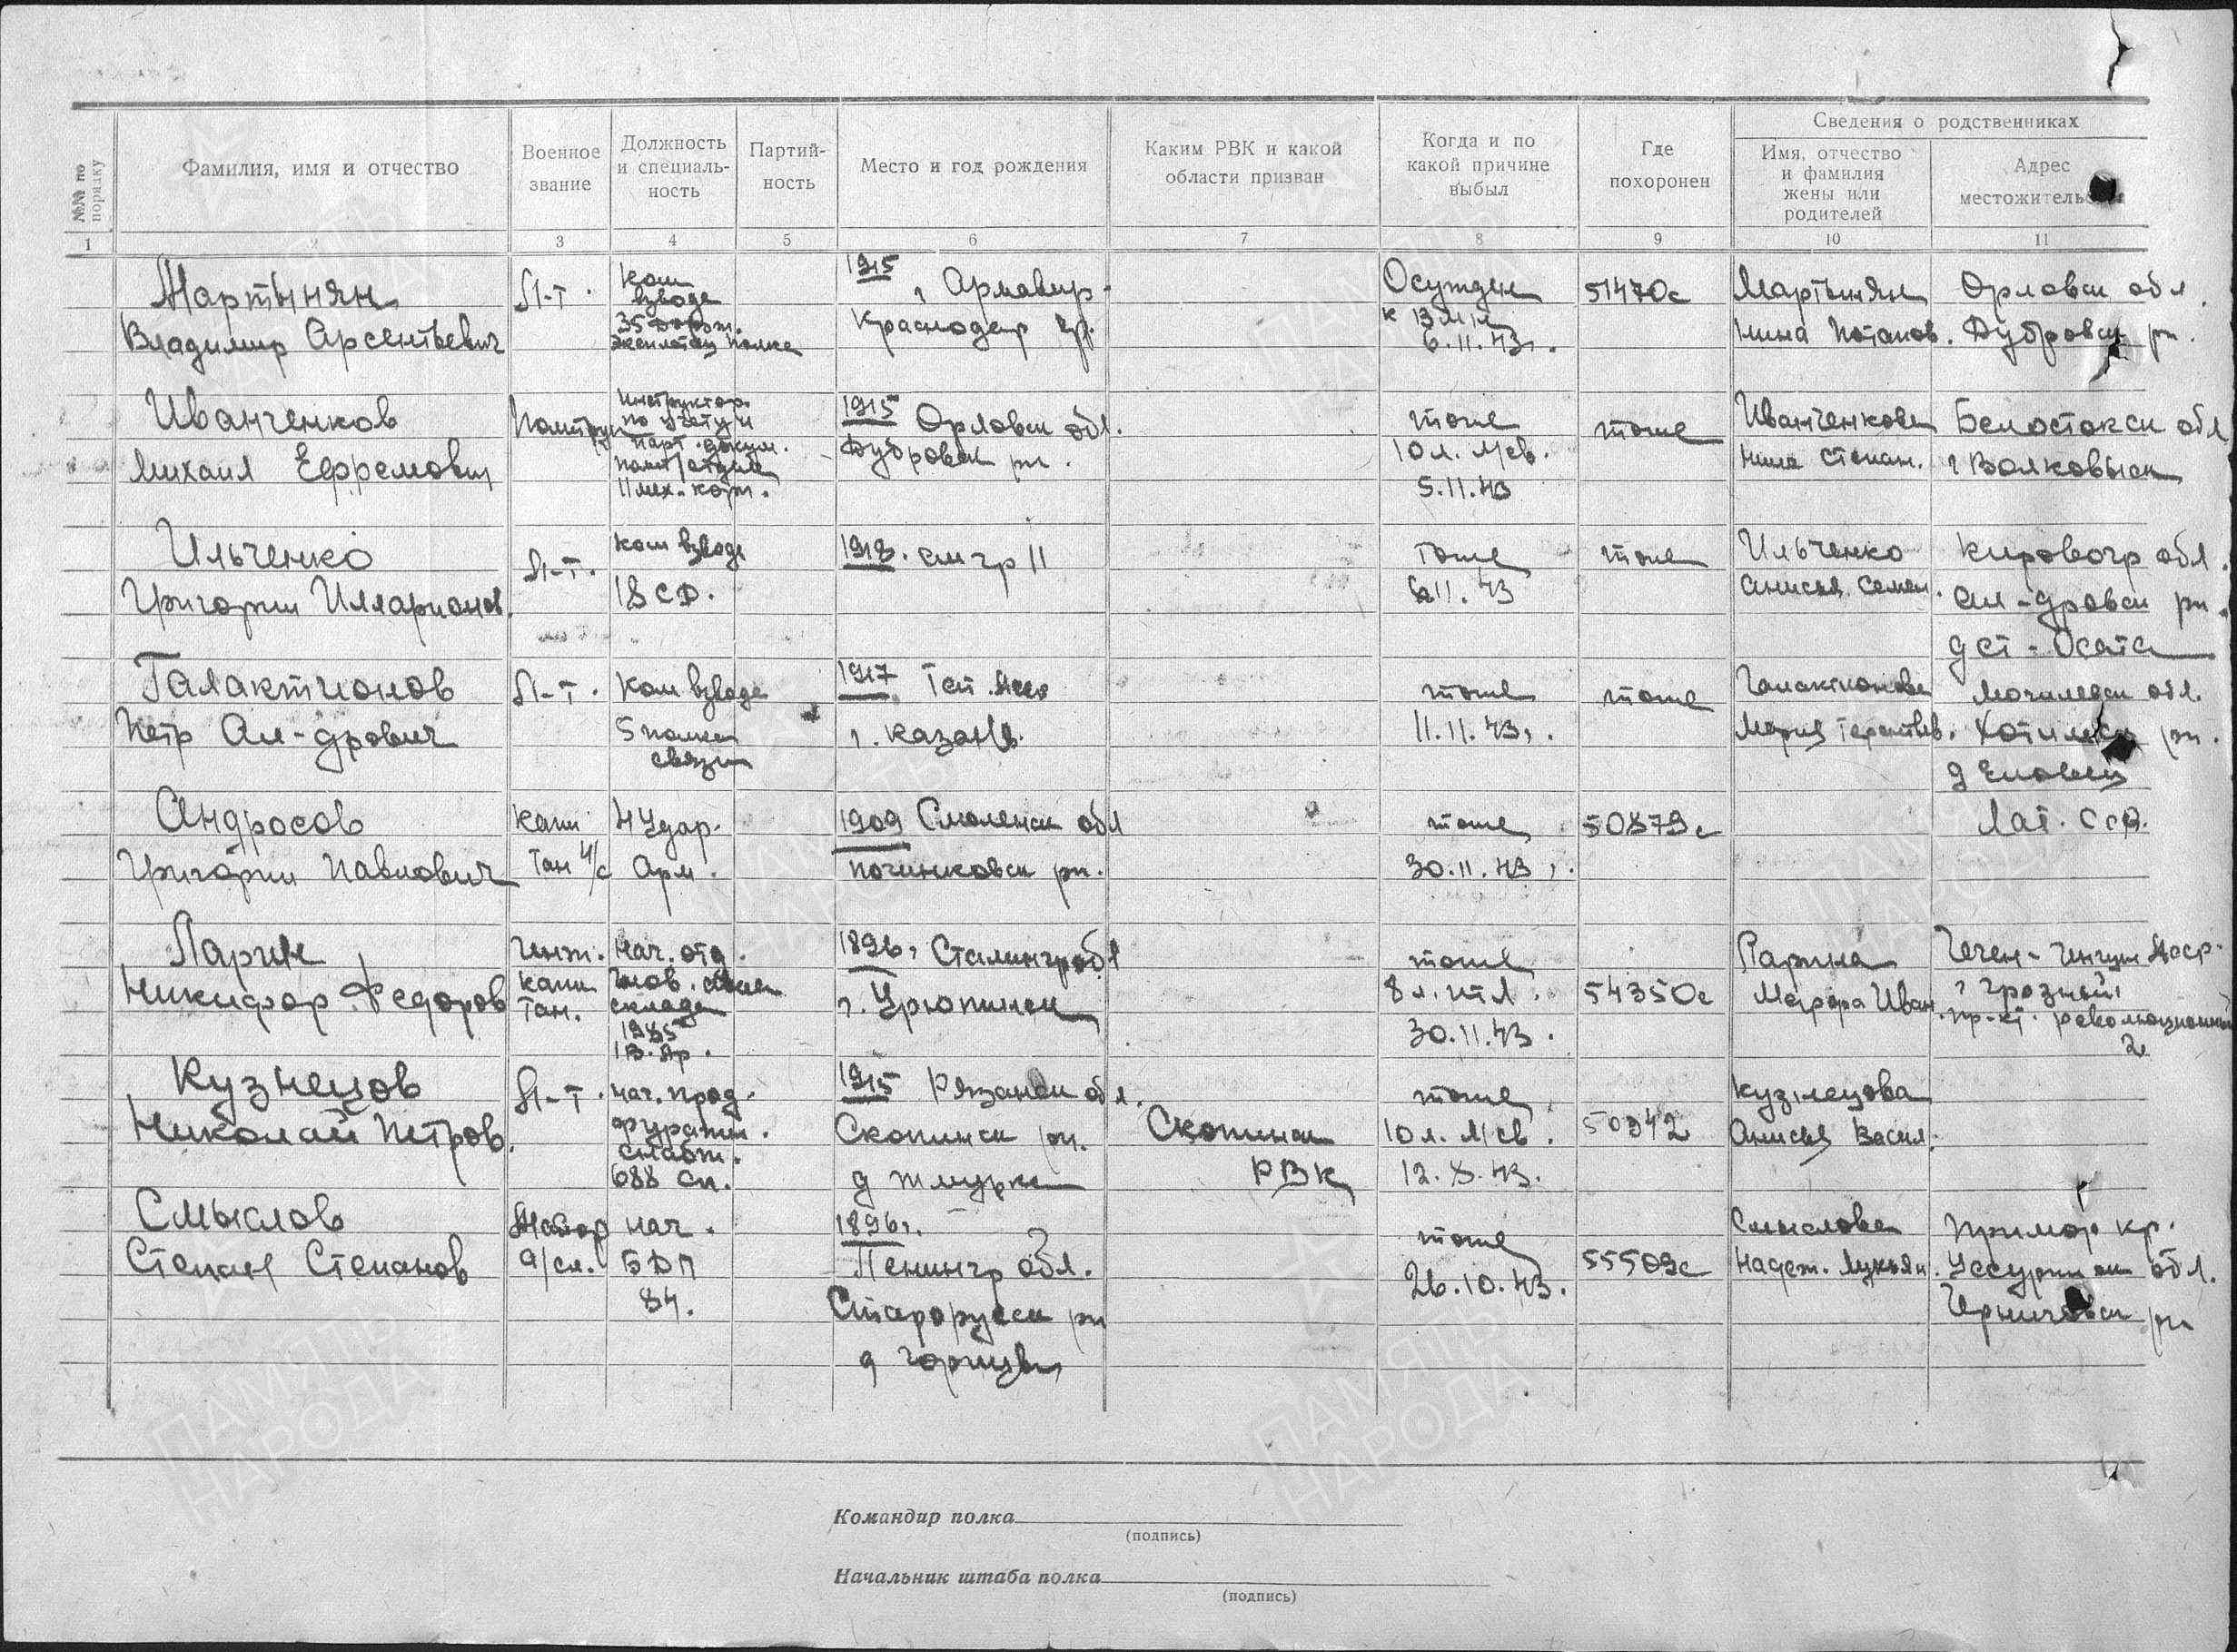 №№ по порядку
Фамилия, имя и отчество
Военное звание
Должность и специаль-ность
Партий-ность
Место и год рождения
Каким РВК и какой области призван
Когда и по какой причине выбыл
Где похоронен
Сведения о родственниках
Имя, отчество и фамилия жены или родителей
Адрес
1 2 3 4 5 6 7 8 9 10 11
Мартынян
Владимир Арсентьевич
Л-т.
Ком
взвода
35
полка
1915
г. Армавир
Краснодар кр.
Осужден
к
6.11.43г.
51470с
Мартынян
Нина Потапов.
Орловск обл.
Дубровск рн.
Иванченков
Михаил Ефремович
Политрук
Инструктор
по учету и
парт. докум.
полит/отдела
11 мех. корп.
1915 Орловск обл.
Дубровск рн.
тоже
10 л. л/св.
5.11.43
тоже
Иванченкова
Нина Степан.
Белостокск обл
г Волковыск
Ильченко
Григорий Илларионов.
Л-т.
Ком взвода
18 СД.
1918. см гр 11
тоже
6.11.43
тоже
Ильченко
Анисья Семен.
Кировогр обл.
Ал-дровск рн.
д ст-Осота
Галактионов
Петр Ал-дрович
Л-т.
Ком взвода
5 полка
связи
1917 Тат.
г. Казань.
тоже
11.11.43г.
тоже
Галактионова
Мария Терентьев.
Могилевск обл.
Хотимск рн.
д Еловец
Андросов
Григорий Павлович
Капи
тан и/с
4 Удар.
Арм.
1909 Смоленск обл
Починковск рн.
тоже
30.11.43г.
50879с
Лат. ССР.
Ларин
Никифор Федоров
Инж.
Капи
тан.
Нач. отд.
склада
1985
1896г Сталингр обл
г. Урюпинск
тоже
8 л. итл.
30.11.43.
54350с
Ларина
Марфа Иван.
Чечен-Ингуш Асср.
г Грозный
пр-кт. Революционный
2
Кузнецов
Николай Петров.
Л-т.
Нач. прод.
фуражн.
снабж.
688 сп.
1915 Рязанск обл.
Скопинск рн.
д Жмурки
Скопинск
РВК
тоже
10 л. л/св.
12.8.43.
50942
Кузнецова
Анисья Васил.
Смыслов
Степан Степанов
Майор
а/сл.
Нач.
БДП
84.
1896г.
Ленингр обл.
Старорусск рн
д Горицы
тоже
26.10.43.
55509с
Смыслова
Надеж. Лукьян.
Примор кр.
Уссурийск обл.
Черниговск рн
Командир полка
(подпись)
Начальник штаба полка
(подпись)
ПАМЯТЬ НАРОДА